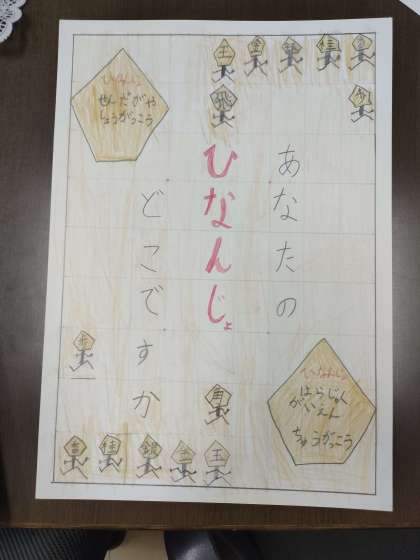 あなたの
ひなんじょ
どこですか
ひなんじょ
せんだがや
しょうがっこう
ひなんじょ
はらじゅく
がいえん
ちゅうがっこう
王
金
銀
桂
飛
歩
角
香
桂
銀
金
王